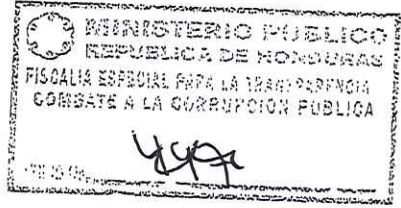 MINISTERIO PUBLICO
REPUBLICA DE HONDURAS
FISCALIA ESPECIAL PARA LA TRANSPARENCIA
COMBATE A LA CORRUPCION PUBLICA